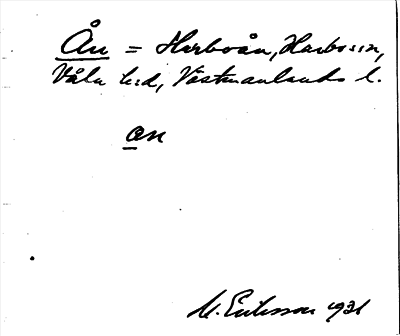 Ån = Harboån, Harbo sn,
Våla hd, Västmanlands l.
an
M. Eriksson 1931